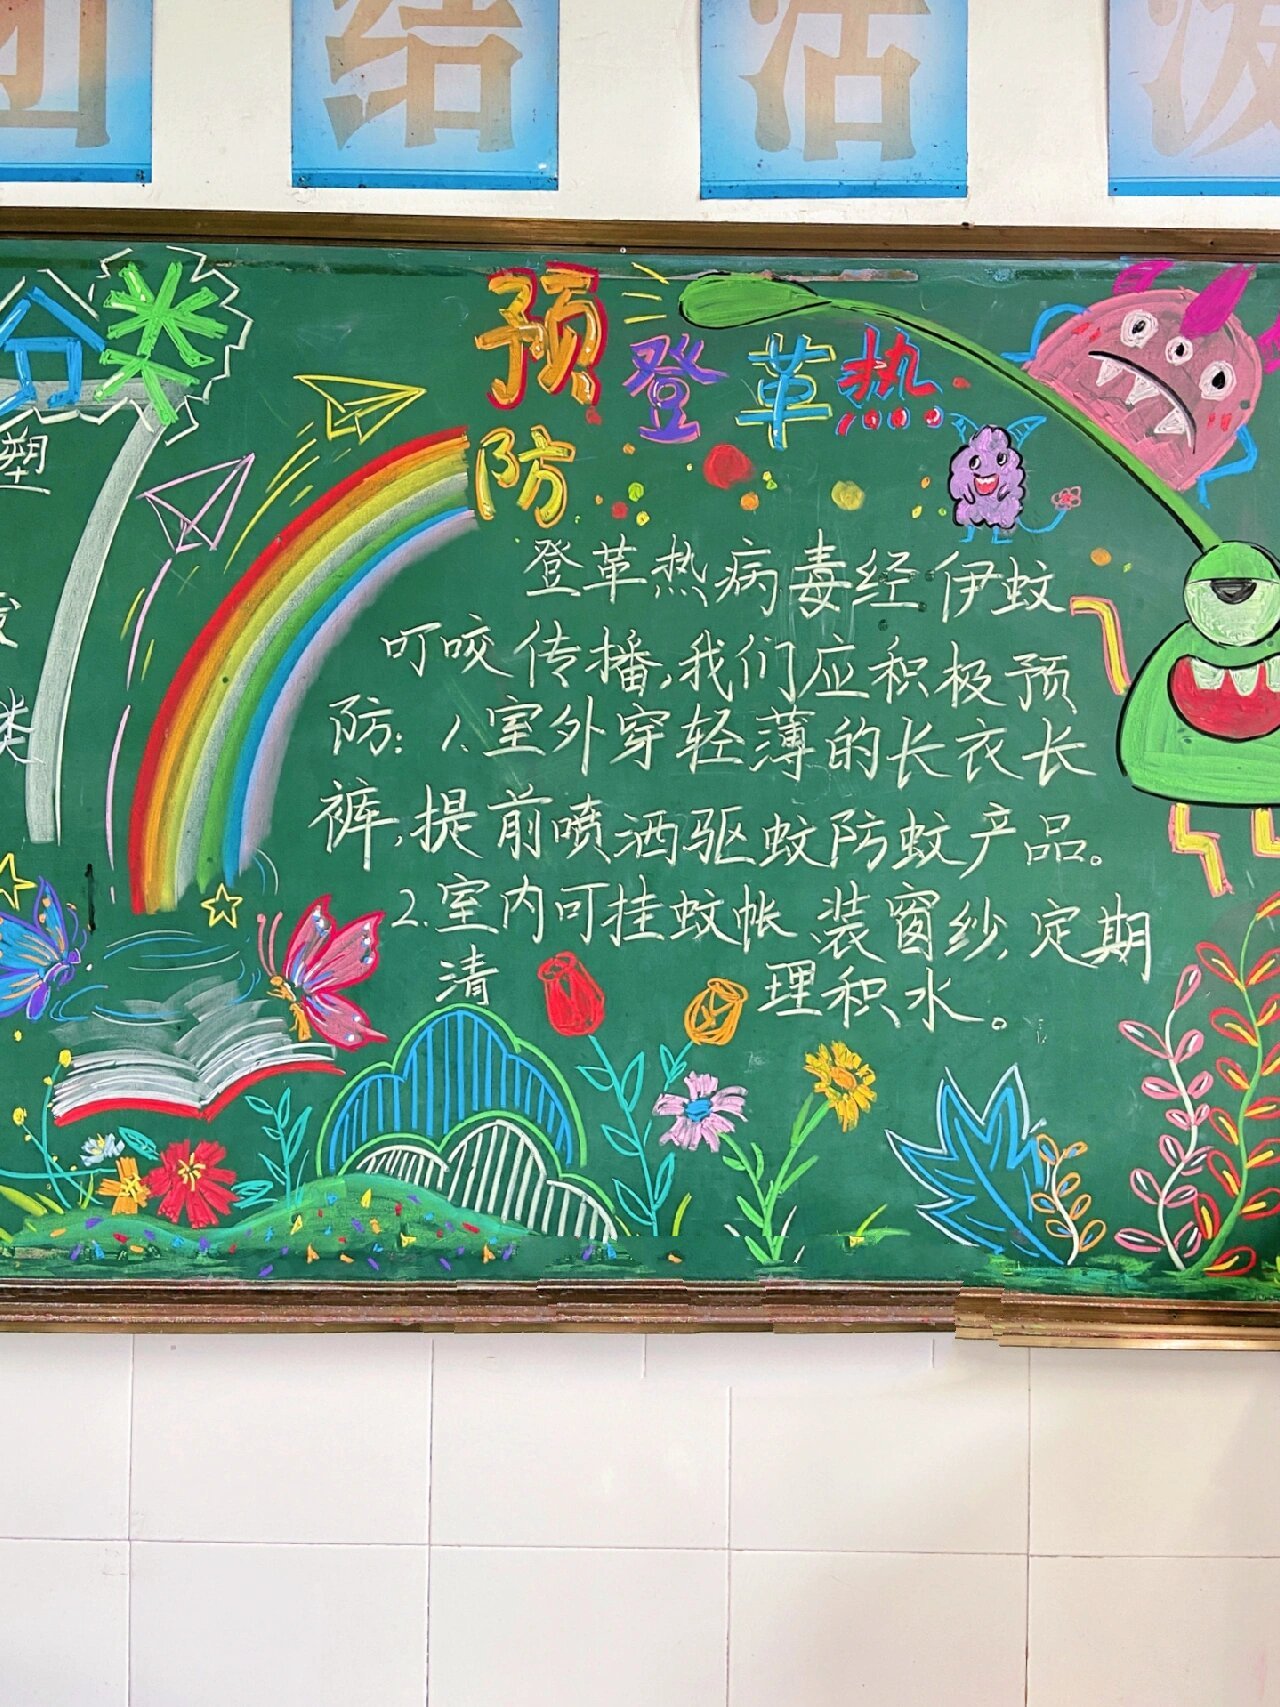 团结活泼
分类
塑
类
预防登革热
登革热病毒经伊蚊
叮咬传播,我们应积极预
防:1.室外穿轻薄的长衣长
裤,提前喷洒驱蚊防蚊产品。
2.室内可挂蚊帐、装窗纱,定期
清理积水。